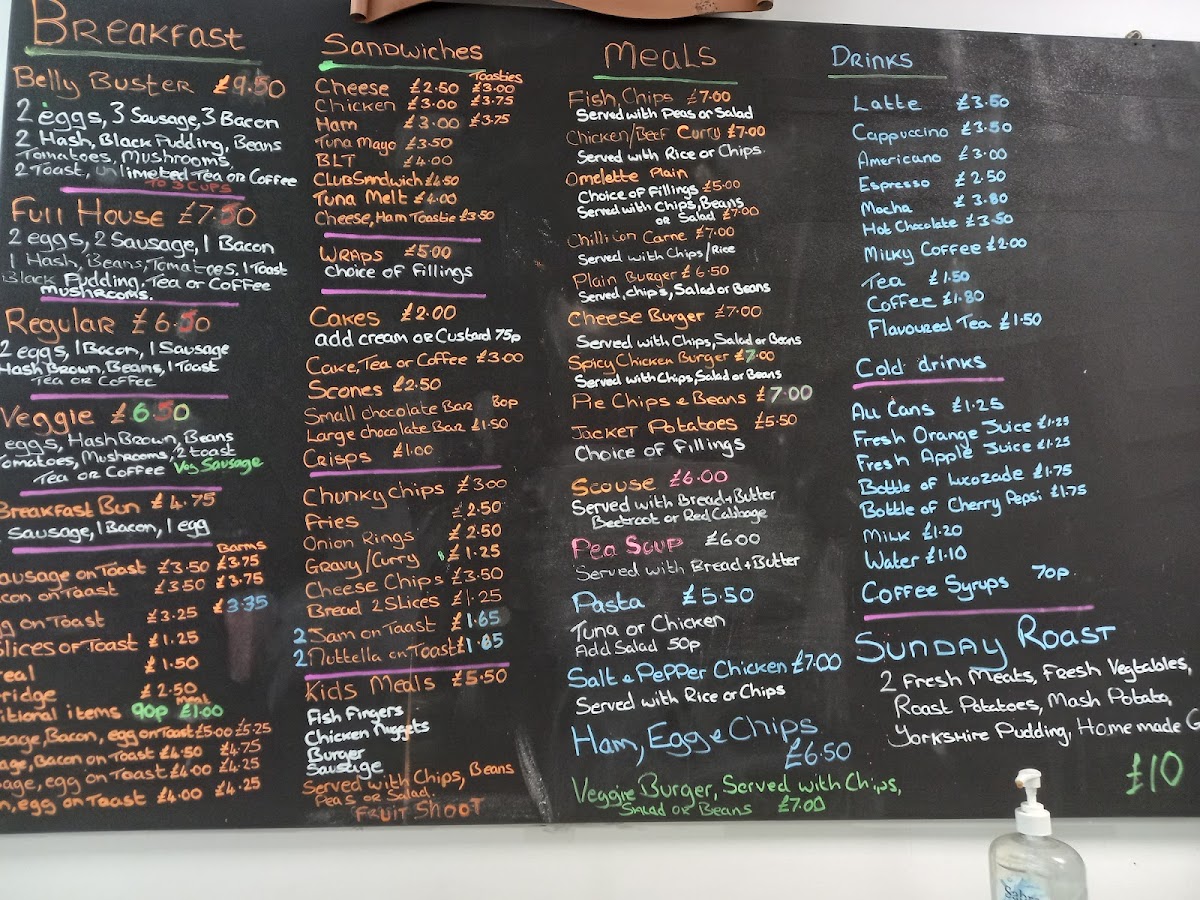 Breakfast
Belly Buster £9.50
2 eggs, 3 Sausage, 3 Bacon
2 Hash, Black Pudding, Beans
Tomatoes, Mushrooms,
2 Toast, unlimeted Tea or Coffee
TO 3 CUPS
Full House £7.50
2 eggs, 2 Sausage, 1 Bacon
1 Hash, Beans, Tomatoes, 1 Toast
Black Pudding, Tea or Coffee
Mushrooms.
Regular £6.50
2 eggs, 1 Bacon, 1 Sausage
Hash Brown, Beans, 1 Toast
Tea or Coffee
Veggie £6.50
eggs, Hash Brown, Beans
Tomatoes, Mushrooms, 2 toast
Tea or Coffee Veg Sausage
Breakfast Bun £4.75
Sausage, 1 Bacon, 1 egg
Barms
ausage on Toast £3.50 £3.75
con on Toast £3.50 £3.75
g on Toast £3.25 £3.35
lices of Toast £1.25
real £1.50
ridge £2.50
meat
itional items 90p £1.00
sage, Bacon, egg on Toast £5.00 £5.25
age, Bacon on Toast £4.50 £4.75
age, egg on Toast £4.00 £4.25
n, egg on Toast £4.00 £4.25
Sandwiches
Toasties
Cheese £2.50 £3.00
Chicken £3.00 £3.75
Ham £3.00 £3.75
Tuna Mayo £3.50
BLT £4.00
Club Sandwich £4.50
Tuna Melt £4.00
Cheese, Ham Toastie £3.50
Wraps £5.00
Choice of Fillings
Cakes £2.00
add cream or Custard 75p
Cake, Tea or Coffee £3.00
Scones £2.50
Small chocolate Bar 80p
Large chocolate Bar £1.50
Crisps £1.00
Chunky chips £3.00
Fries £2.50
Onion Rings £2.50
Gravy/Curry £1.25
Cheese Chips £3.50
Bread 2 Slices £1.25
2 Jam on Toast £1.65
2 Nuttella on Toast £1.65
Kids Meals £5.50
Fish Fingers
Chicken Nuggets
Burger
Sausage
Served with Chips, Beans
Peas or Salad.
FRUIT SHOOT
Meals
Fish, Chips £7.00
Served with Peas or Salad
Chicken/Beef Curry £7.00
Served with Rice or Chips.
Omelette Plain
Choice of Fillings £5.00
Served with Chips, Beans
or Salad £7.00
Chilli Con Carne £7.00
Served with Chips/Rice
Plain Burger £6.50
Served, chips, Salad or Beans
Cheese Burger £7.00
Served with Chips, Salad or Beans
Spicy Chicken Burger £7.00
Served with Chips, Salad or Beans
Pie Chips & Beans £7.00
Jacket Potatoes £5.50
Choice of Fillings
Scouse £6.00
Served with Bread + Butter
Beetroot or Red Cabbage
Pea Soup £6.00
Served with Bread + Butter
Pasta £5.50
Tuna or Chicken
Add Salad 50p
Salt & Pepper Chicken £7.00
Served with Rice or Chips
Ham, Egg & Chips
£6.50
Veggie Burger, Served with Chips,
Salad or Beans £7.00
Drinks
Latte £3.50
Cappuccino £3.50
Americano £3.00
Espresso £2.50
Mocha £3.80
Hot Chocolate £3.50
Milky Coffee £2.00
Tea £1.50
Coffee £1.80
Flavoured Tea £1.50
Cold drinks
All Cans £1.25
Fresh Orange Juice £1.25
Fresh Apple Juice £1.25
Bottle of Lucozade £1.75
Bottle of Cherry Pepsi £1.75
Milk £1.20
Water £1.10
Coffee Syrups 70p.
Sunday Roast
2 Fresh Meats, Fresh Vegtables,
Roast Potatoes, Mash Potato,
Yorkshire Pudding, Home made G
£10